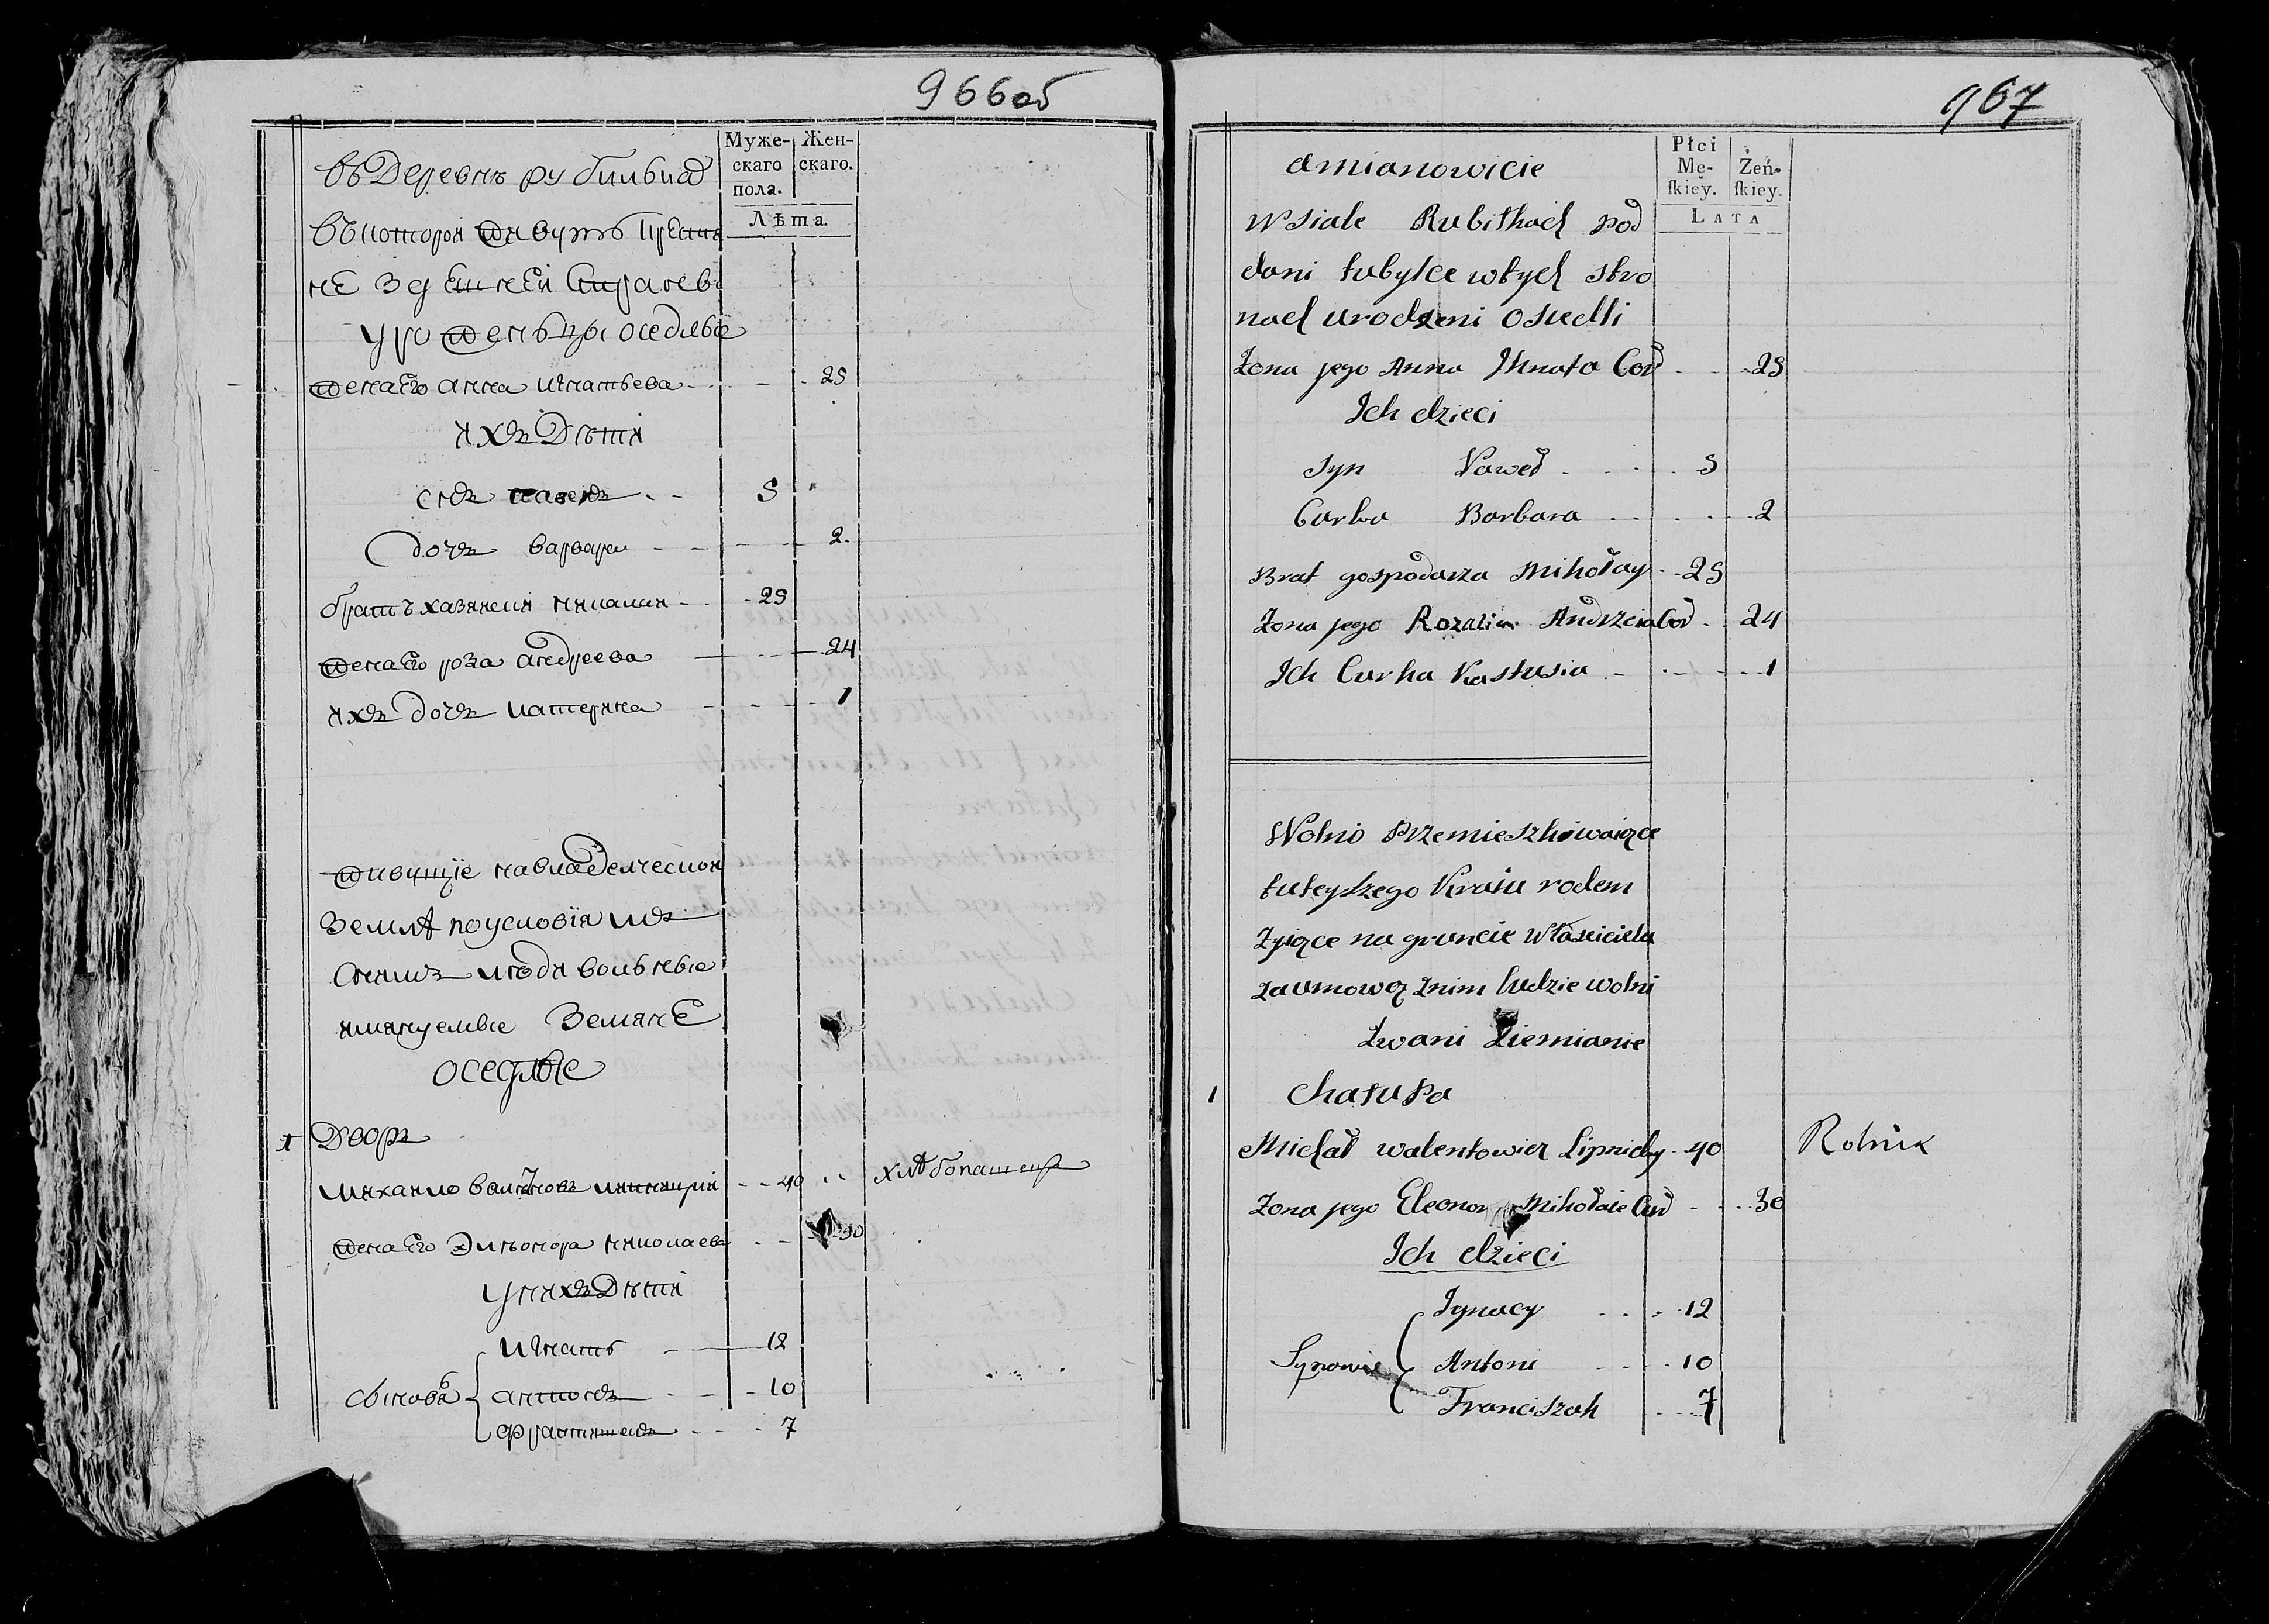 966об
Муже-
скаго
пола.
Жен-
скаго.
Лѣта.
въ Деревнѣ
въ которой живутъ
не здешней
урожденцы оседлые
жена Его анна игнатьева 25
ихъ Дѣти
снъ павелъ 5
дочъ варвара 2.
братъ хазяиси николаи 25
жена Его роза андреева 24
ихъ дочъ катерина 1
живущіе на владелческои
землѣ по условіямъ
снимъ люди вольные
имянуемые Земяне
оседлые
1 Дворъ
михаило липницкій 40 хлѣбопашецъ
жена Его Элѣонора николаева 30
у нихъ Дѣти
игнатъ 12
сыновя антонъ 10
францишекъ 7
967
Płci
Mę-
ſkiey.
Żeń-
ſkiey.
LATA
amianowicie
w siale Rubilkach pod
dani tubylce w tych stro
nach urodzeni osiedli
Żona jego Anna Ihnata Cor 25
Ich dzieci
Syn Paweł 5
Curka Barbara 2
Brat gospodarza Mikołay 25
Żona jego Rozalia Andrzeia Cor 24
Ich Curka Kastusia 1
Wolno Przemieszkiwaiące
tuteyszego Kraiu rodem
Zyiące na gruncie Właściciela
za umową z nim ludzie wolni
Zwani Ziemianie
1 Chałupa
Michał Walentowicz Lipnicky 40 Rolnik
Żona jego Eleonora Mikołaie Cur 30
Ich dzieci
Ignacy 12
Synowie Antoni 10
Franciszak 7